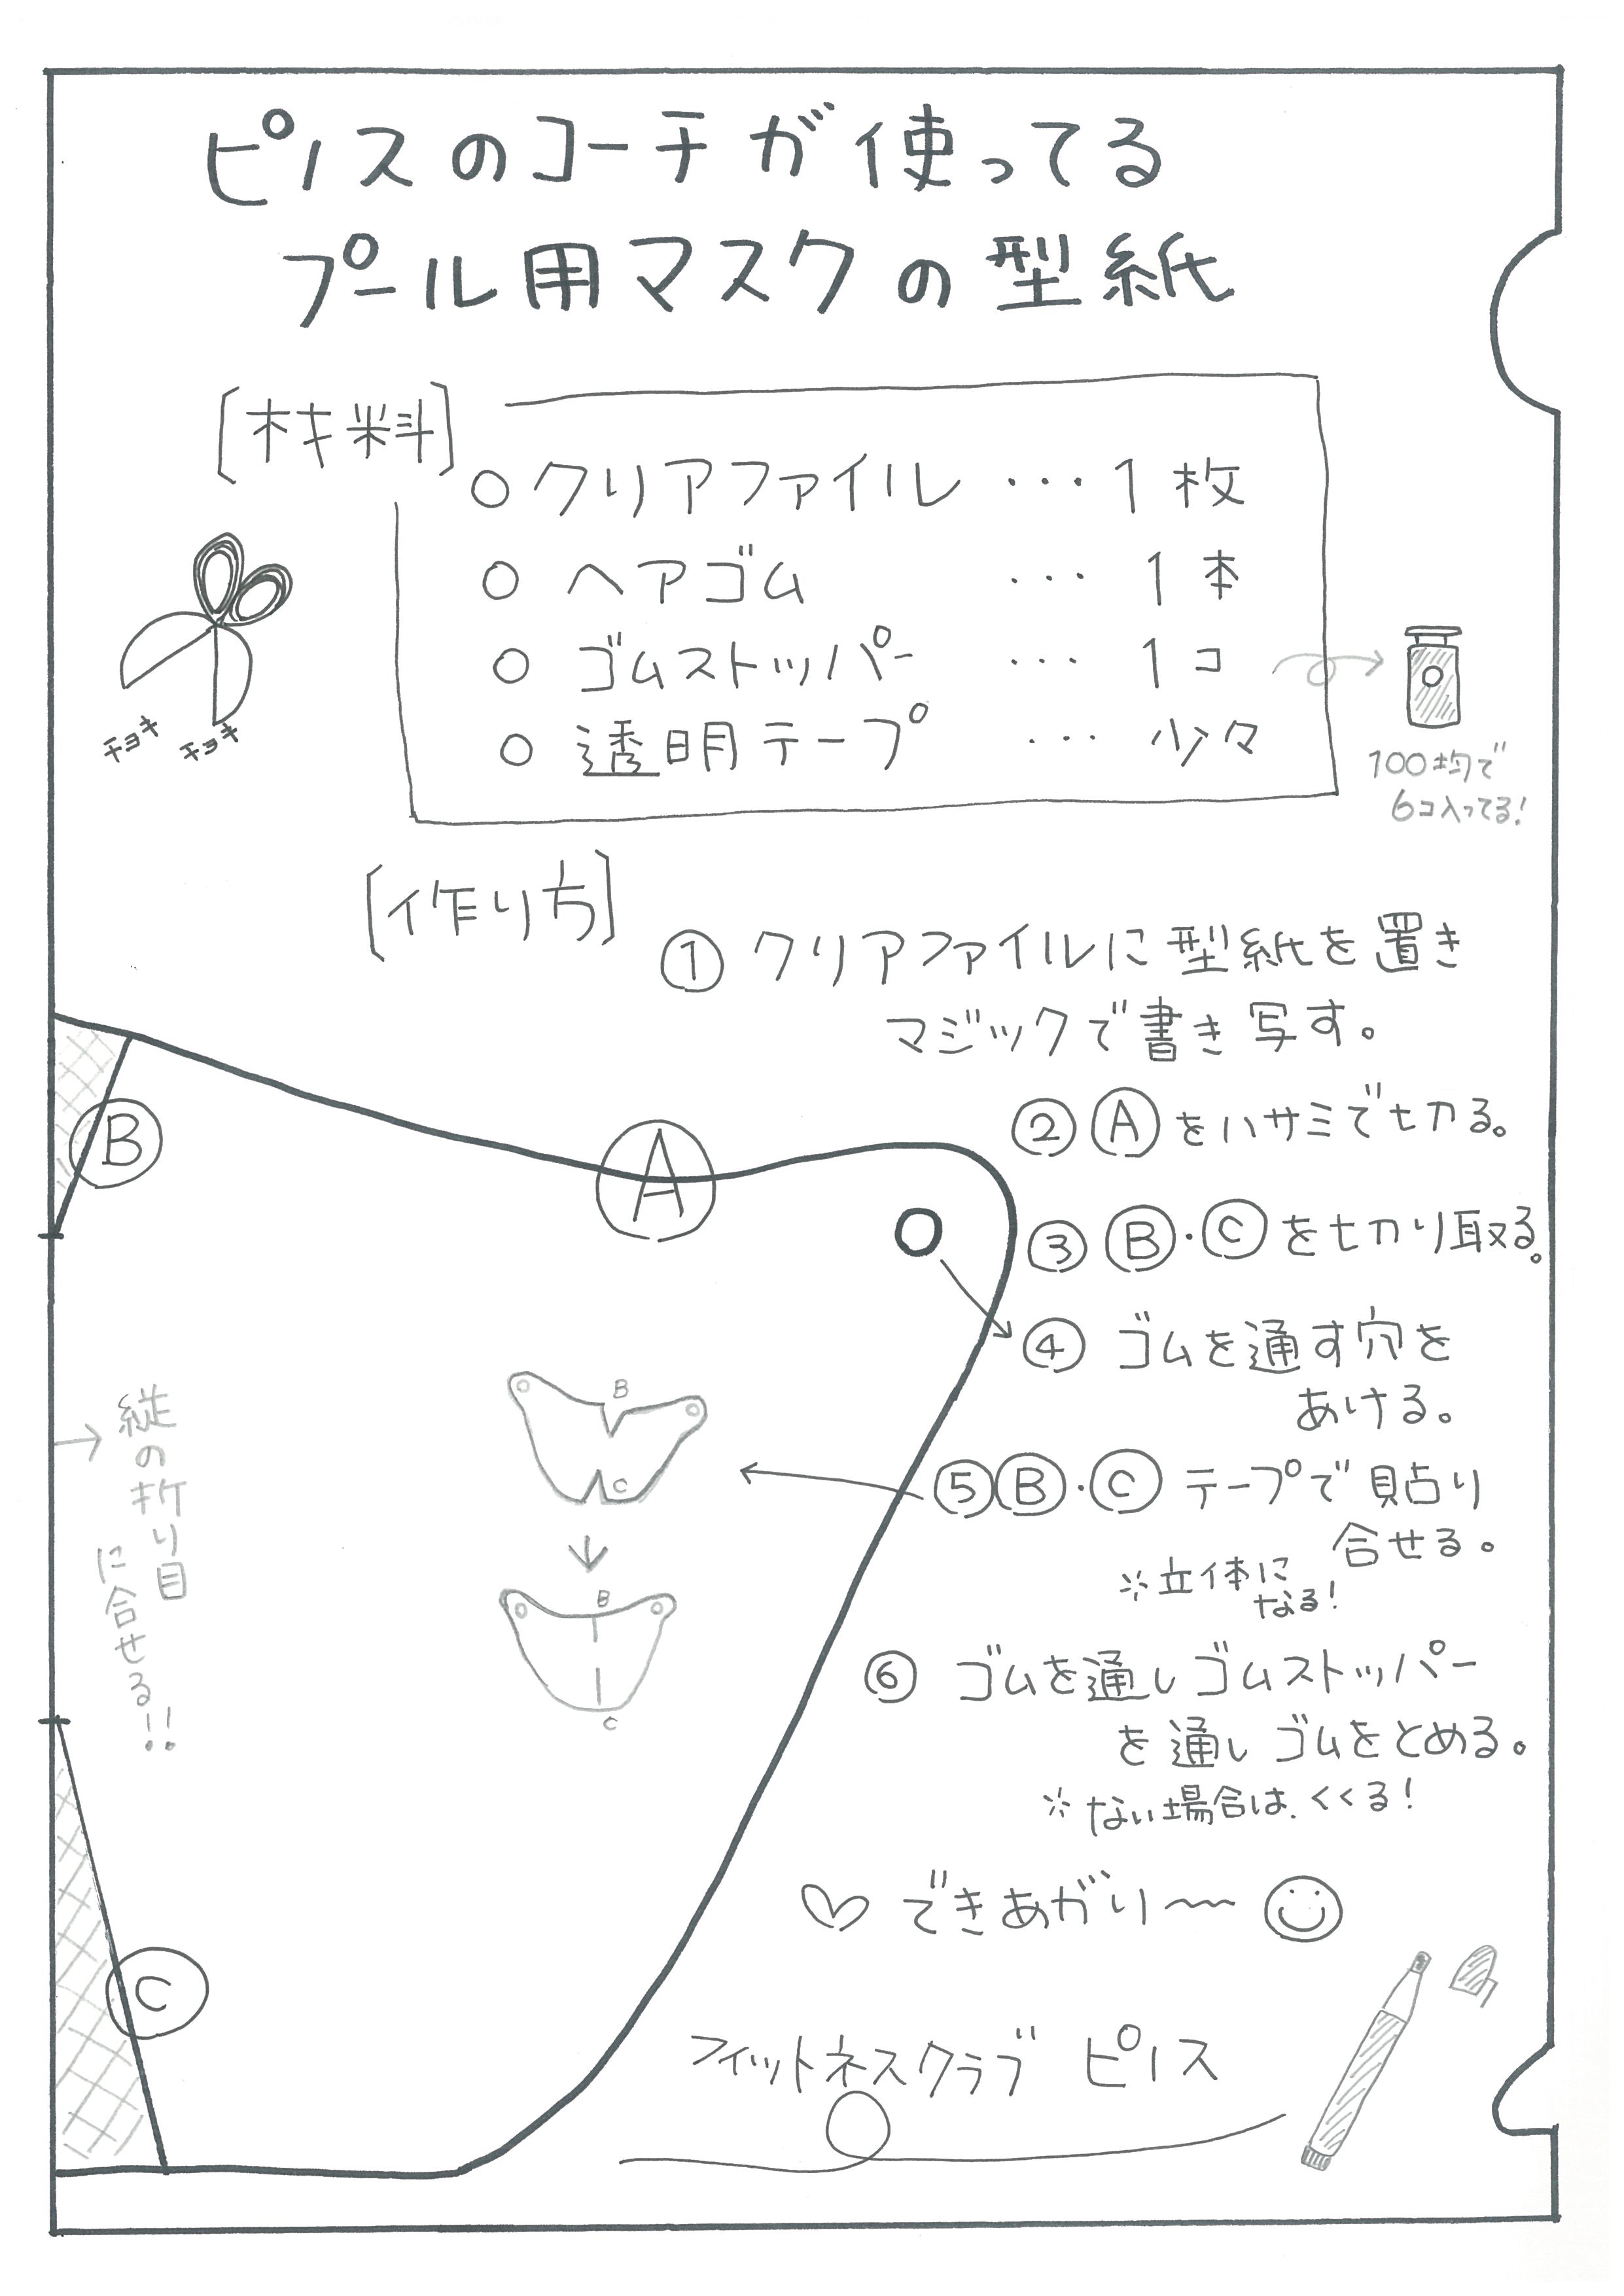 ピノスのコーチが使ってる
プール用マスクの型紙
[材料]
○クリアファイル…1枚
○ヘアゴム…1本
○ゴムストッパー…1コ
○透明テープ…少々
チョキ チョキ
100均で
6コ入ってる!
[作り方]
①クリアファイルに型紙を置き
マジックで書き写す。
②Ⓐをハサミで切る。
③Ⓑ・Ⓒを切り取る。
④ゴムを通す穴を
あける。
⑤Ⓑ・Ⓒテープで貼り
合せる。
※立体に
なる!
⑥ゴムを通しゴムストッパー
を通しゴムをとめる。
※ない場合は、くくる!
♡できあがり〜〜☺
フィットネスクラブ ピノス
Ⓑ
Ⓐ
→縦の折り目
に合せる!!
B
C
B
C
Ⓒ